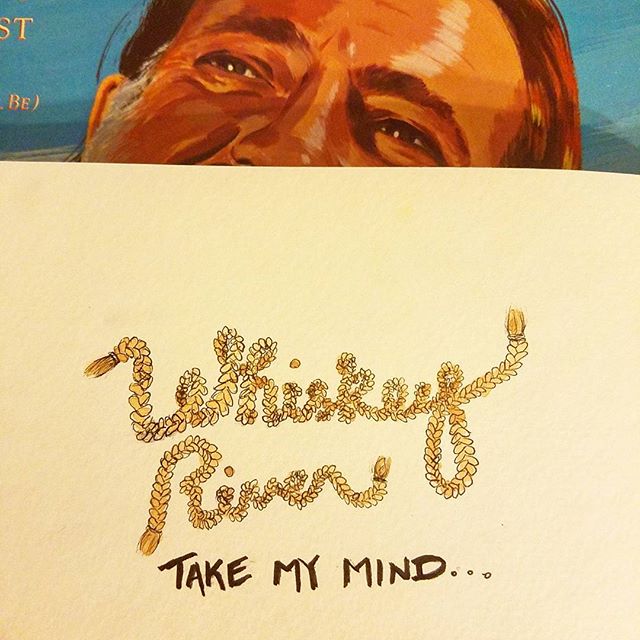 ST
BE)
Whiskey
River
TAKE MY MIND...